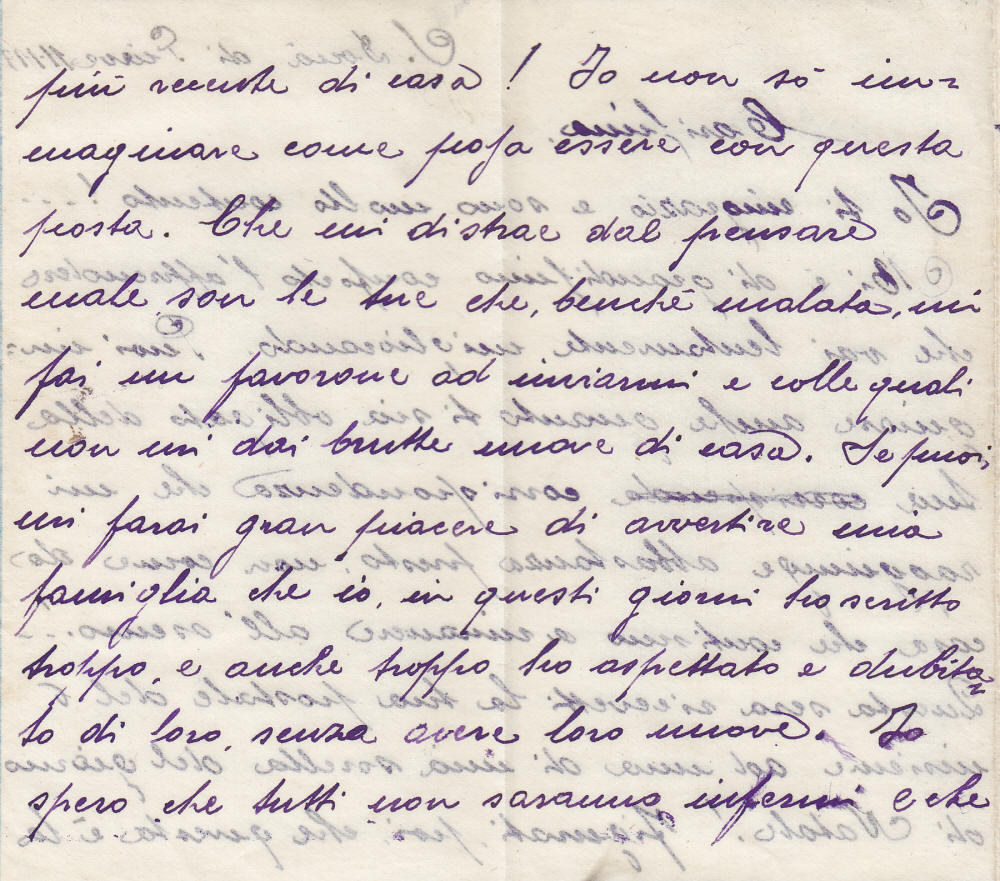 più recente di casa! Io non sò im=
maginare come possa essere con questa
posta. Che mi distrae dal pensare
male son le tue che, benchè malata, mi
fai un favorone ad inviarmi e colle quali
non mi dai brutte nuove di casa. Se puoi,
mi farai gran piacere di avvertire mia
famiglia che io, in questi giorni ho scritto
troppo, e anche troppo ho aspettato e dubita=
to di loro, senza avere loro nuove. Io
spero che tutti non saranno infermi e che